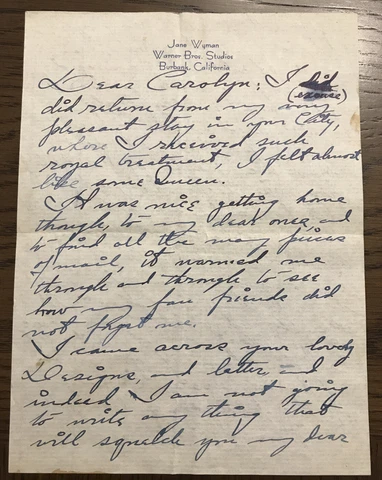 Jane Wyman
Warner Bros. Studios
Burbank, California
Dear Carolyn; I did
(excuse)
did return from my very
pleasant stay in your City,
where I received such
royal treatment, I felt almost
like some Queen.
It was nice getting home
though, to my dear ones, and
to find all the many pieces
of mail, it warmed me
through and through to see
how my fan friends did
not forget me.
I came across your lovely
Designs, and letter and
indeed I am not going
to write any thing that
will squelch you my dear